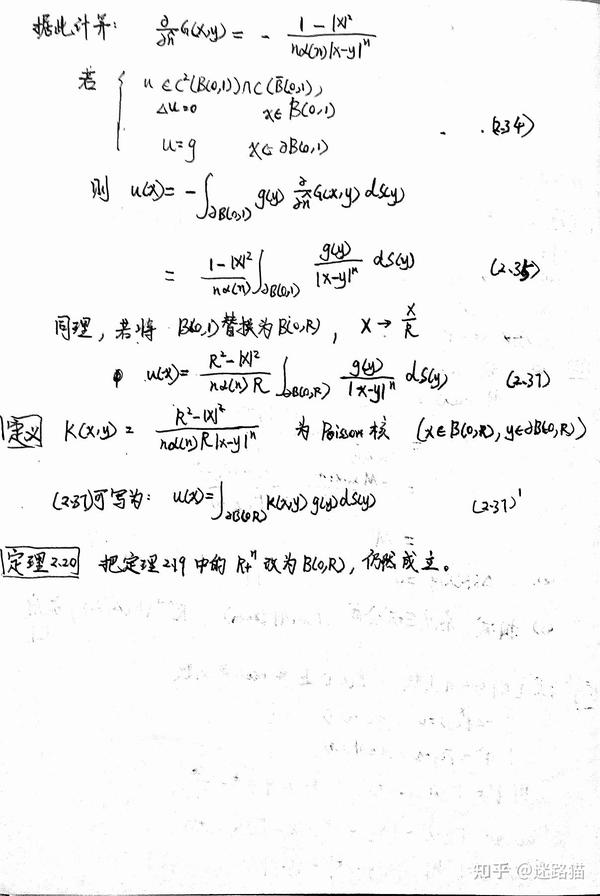 据此计算: ∂/∂n̂ G(x,y) = - (1-|x|²)/(nα(n)|x-y|ⁿ)
若 { u∈C²(B(0,1))∩C(B̄(0,1)),
Δu=0 x∈B(0,1) (2.34)
u=g x∈∂B(0,1)
则 u(x)= -∫_{∂B(0,1)} g(y) ∂/∂n̂ G(x,y) dS(y)
= (1-|x|²)/(nα(n)) ∫_{∂B(0,1)} g(y)/|x-y|ⁿ dS(y) (2.35)
同理, 若将 B(0,1)替换为B(0,R), x→x/R
u(x)= (R²-|x|²)/(nα(n)R) ∫_{∂B(0,R)} g(y)/|x-y|ⁿ dS(y) (2.37)
定义 K(x,y)= (R²-|x|²)/(nα(n)R|x-y|ⁿ) 为 Poisson 核 (x∈B(0,R), y∈∂B(0,R))
(2.37)可写为: u(x)=∫_{∂B(0,R)} K(x,y)g(y)dS(y) (2.37)'
定理2.20 把定理2.19中的 R₊ⁿ 改为B(0,R), 仍然成立。
知乎 @迷路猫